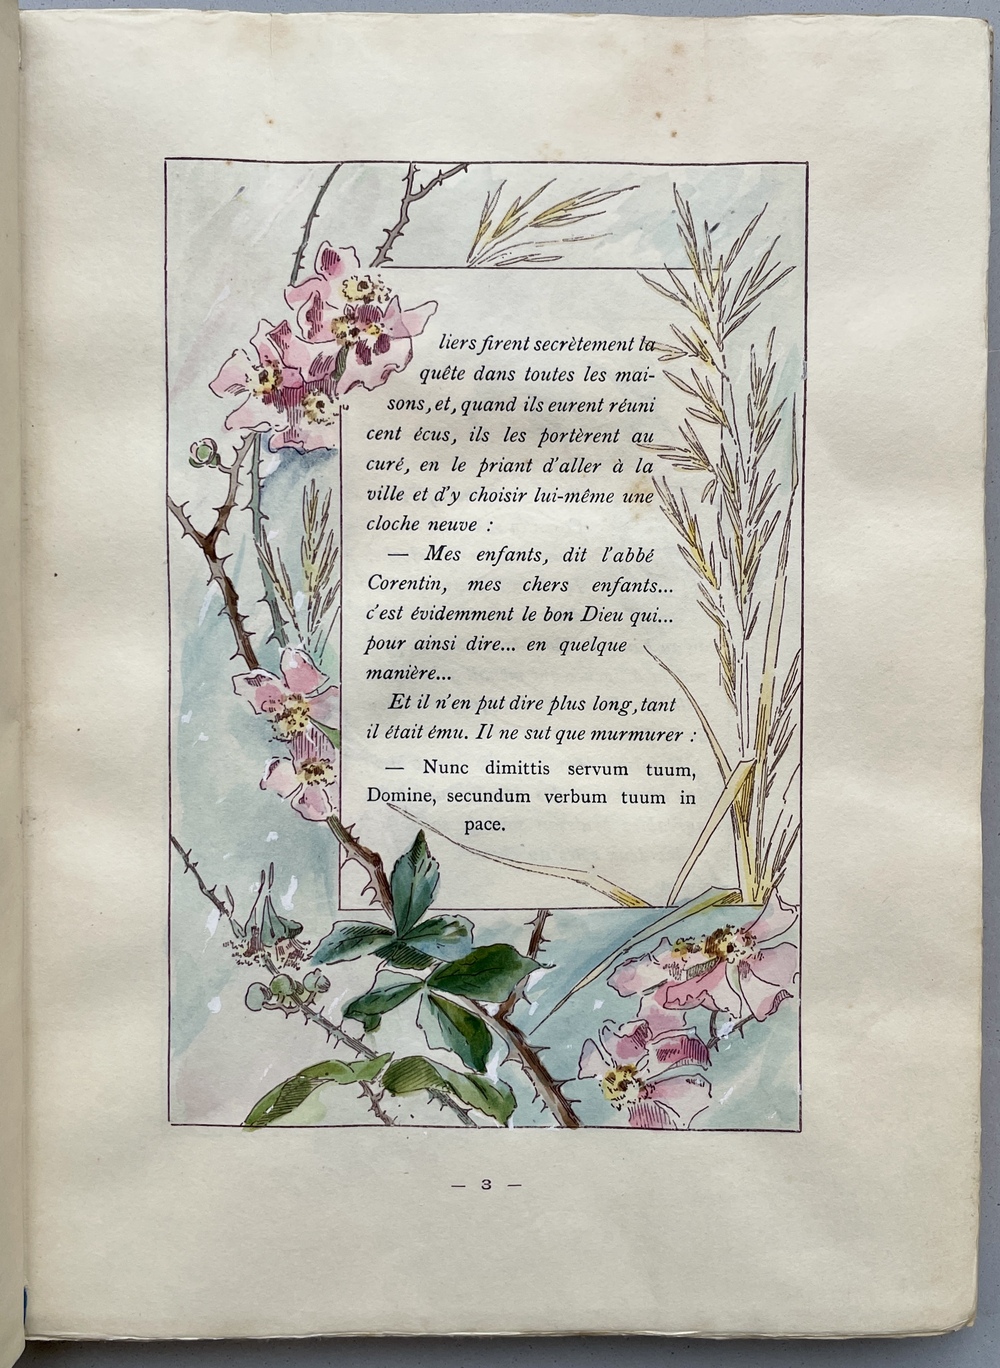 liers firent secrètement la
quête dans toutes les mai-
sons, et, quand ils eurent réuni
cent écus, ils les portèrent au
curé, en le priant d'aller à la
ville et d'y choisir lui-même une
cloche neuve :
— Mes enfants, dit l'abbé
Corentin, mes chers enfants...
c'est évidemment le bon Dieu qui...
pour ainsi dire... en quelque
manière...
Et il n'en put dire plus long, tant
il était ému. Il ne sut que murmurer :
— Nunc dimittis servum tuum,
Domine, secundum verbum tuum in
pace.
— 3 —